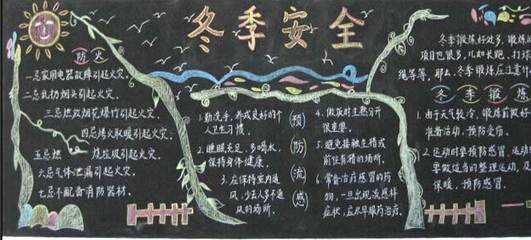 冬季安全
防火
一忌家用电器故障引起火灾。
二忌乱扔烟头引起火灾。
三忌燃放烟花爆竹引起火灾。
四忌烤火取暖引起火灾。
五忌燃烧垃圾引起火灾。
六忌气体泄漏引起火灾。
七忌不配备消防器材。
预防流感
1.勤洗手，养成良好的个
人卫生习惯。
2.睡眠充足，多喝水，
保持身体健康。
3.应保持室内通
风，少去人多不通
风的场所。
4.做饭时生熟分开
很重要。
5.避免接触生猪或
前往有猪的场所。
6.常备治疗感冒的药
物，一旦出现流感样
症状，应尽早服药治疗。
冬季锻炼好处多，锻炼
项目也很多，儿如长跑、打球
绳等等，那么，冬季锻炼应注意
冬季锻炼
1.由于天气较冷，锻炼前做好
准备活动，预防受伤。
2.运动时要预防感冒，运动
要做适当的整理运动，
保暖，预防感冒。